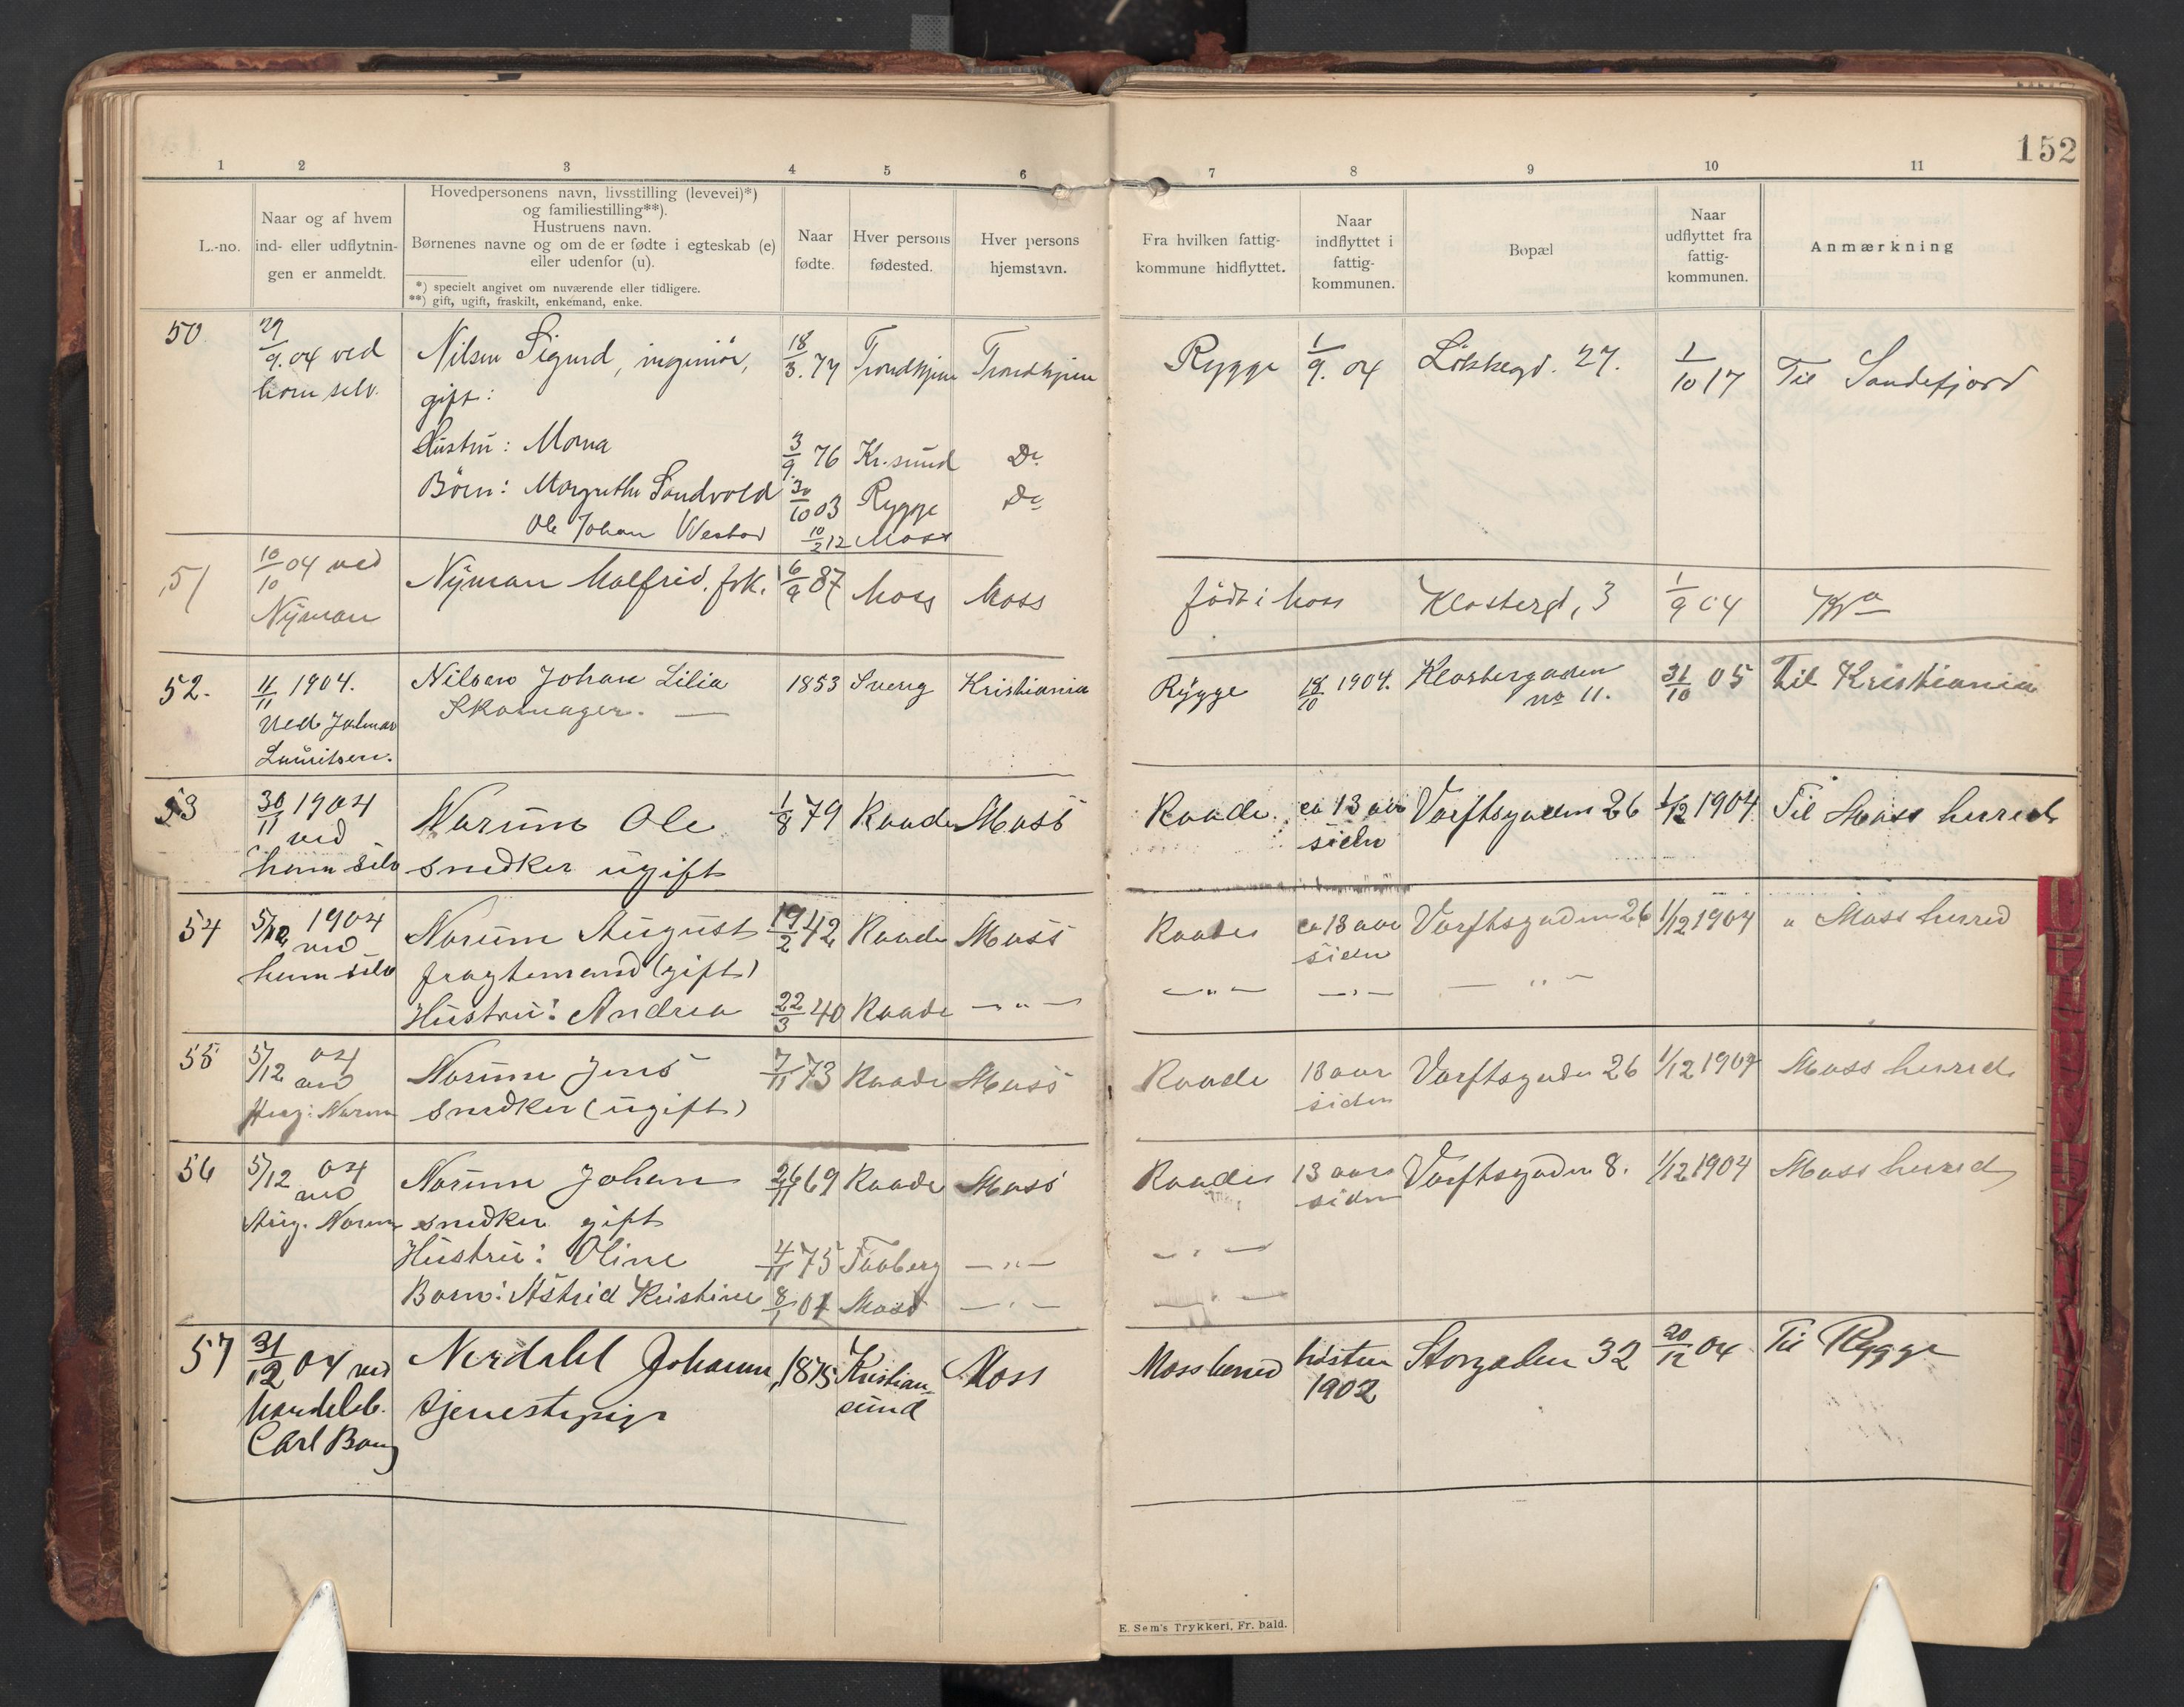 152
1 2 3 4 5 6 7 8 9 10 11
L.-no.
Naar og af hvem
ind- eller udflytnin-
gen er anmeldt.
Hovedpersonens navn, livsstilling (levevei)*)
og familiestilling**).
Hustruens navn.
Børnenes navne og om de er fødte i egteskab (e)
eller udenfor (u).
*) specielt angivet om nuværende eller tidligere.
**) gift, ugift, fraskilt, enkemand, enke.
Naar
fødte.
Hver persons
fødested.
Hver persons
hjemstavn.
Fra hvilken fattig-
kommune hidflyttet.
Naar
indflyttet i
fattig-
kommunen.
Bopæl
Naar
udflyttet fra
fattig-
kommunen.
Anmærkning
50 29/9.04 ved Nilsen Sigurd, ingeniør, 18/3.77 Trondhjem Trondhjem Rygge 1/9.04 27. 1/10 17 Til Sandefjord
ham selv. gift:
Hustru: 3/9.76 Kr.sund Do
Børn: Margrethe Sandvold 30/10 03 Rygge Do
Ole Johan 10/2 12 Moss
51 10/10 04 ved Nyman Halfrid. frk. 16/9 87 Moss Moss født i Moss Klostergd, 3 1/9 04
Nyman
52. 11/11 1904. Nilsen Johan Lilia 1853 Sverig Kristiania Rygge 18/10 1904. Klostergaden 31/10 05 Til Kristiania
Ved Jalmar Skomager. — no 11.
Lauritsen.
53 30/11 1904 Norum Ole 1/8 79 Raade Moss Raade ca 13 aar Værftsgaden 26 1/12 1904 Til Moss herred
ved siden
ham selv snedker ugift
54 5/12 1904 Norum August 19/2 42 Raade Moss Raade ca 13 aar Værftsgaden 26 1/12 1904 " Moss herred
ved siden
ham selv fragtemand (gift) —"— —"— — " —
Hustru: Andrea 22/3 40 Raade —"—
55 5/12 04 Norum Jens 7/11 73 Raade Moss Raade 13 aar Værftsgaden 26 1/12 1904 Moss herred.
ved siden
Aug: Norum snedker (ugift)
56 5/12 04 Norum Johan 26/11 69 Raade Moss Raade 13 aar Værftsgaden 8. 1/12 1904 Moss herred
ved siden
Aug. Norum snedker gift
Hustru: Oline 4/11 75 Faaberg —"— —"—
Barn: Astrid Kristine 8/1 01 Moss —"— —"—
57 31/12 04 ved Nerdahl Johanna, 1875 Kristian- Moss Moss herred høsten Storgaden 32 20/12 04 Til Rygge
handelsb. tjenestepige sund 1902
Carl Bang
E. Sem's Trykkeri, Fr. hald.